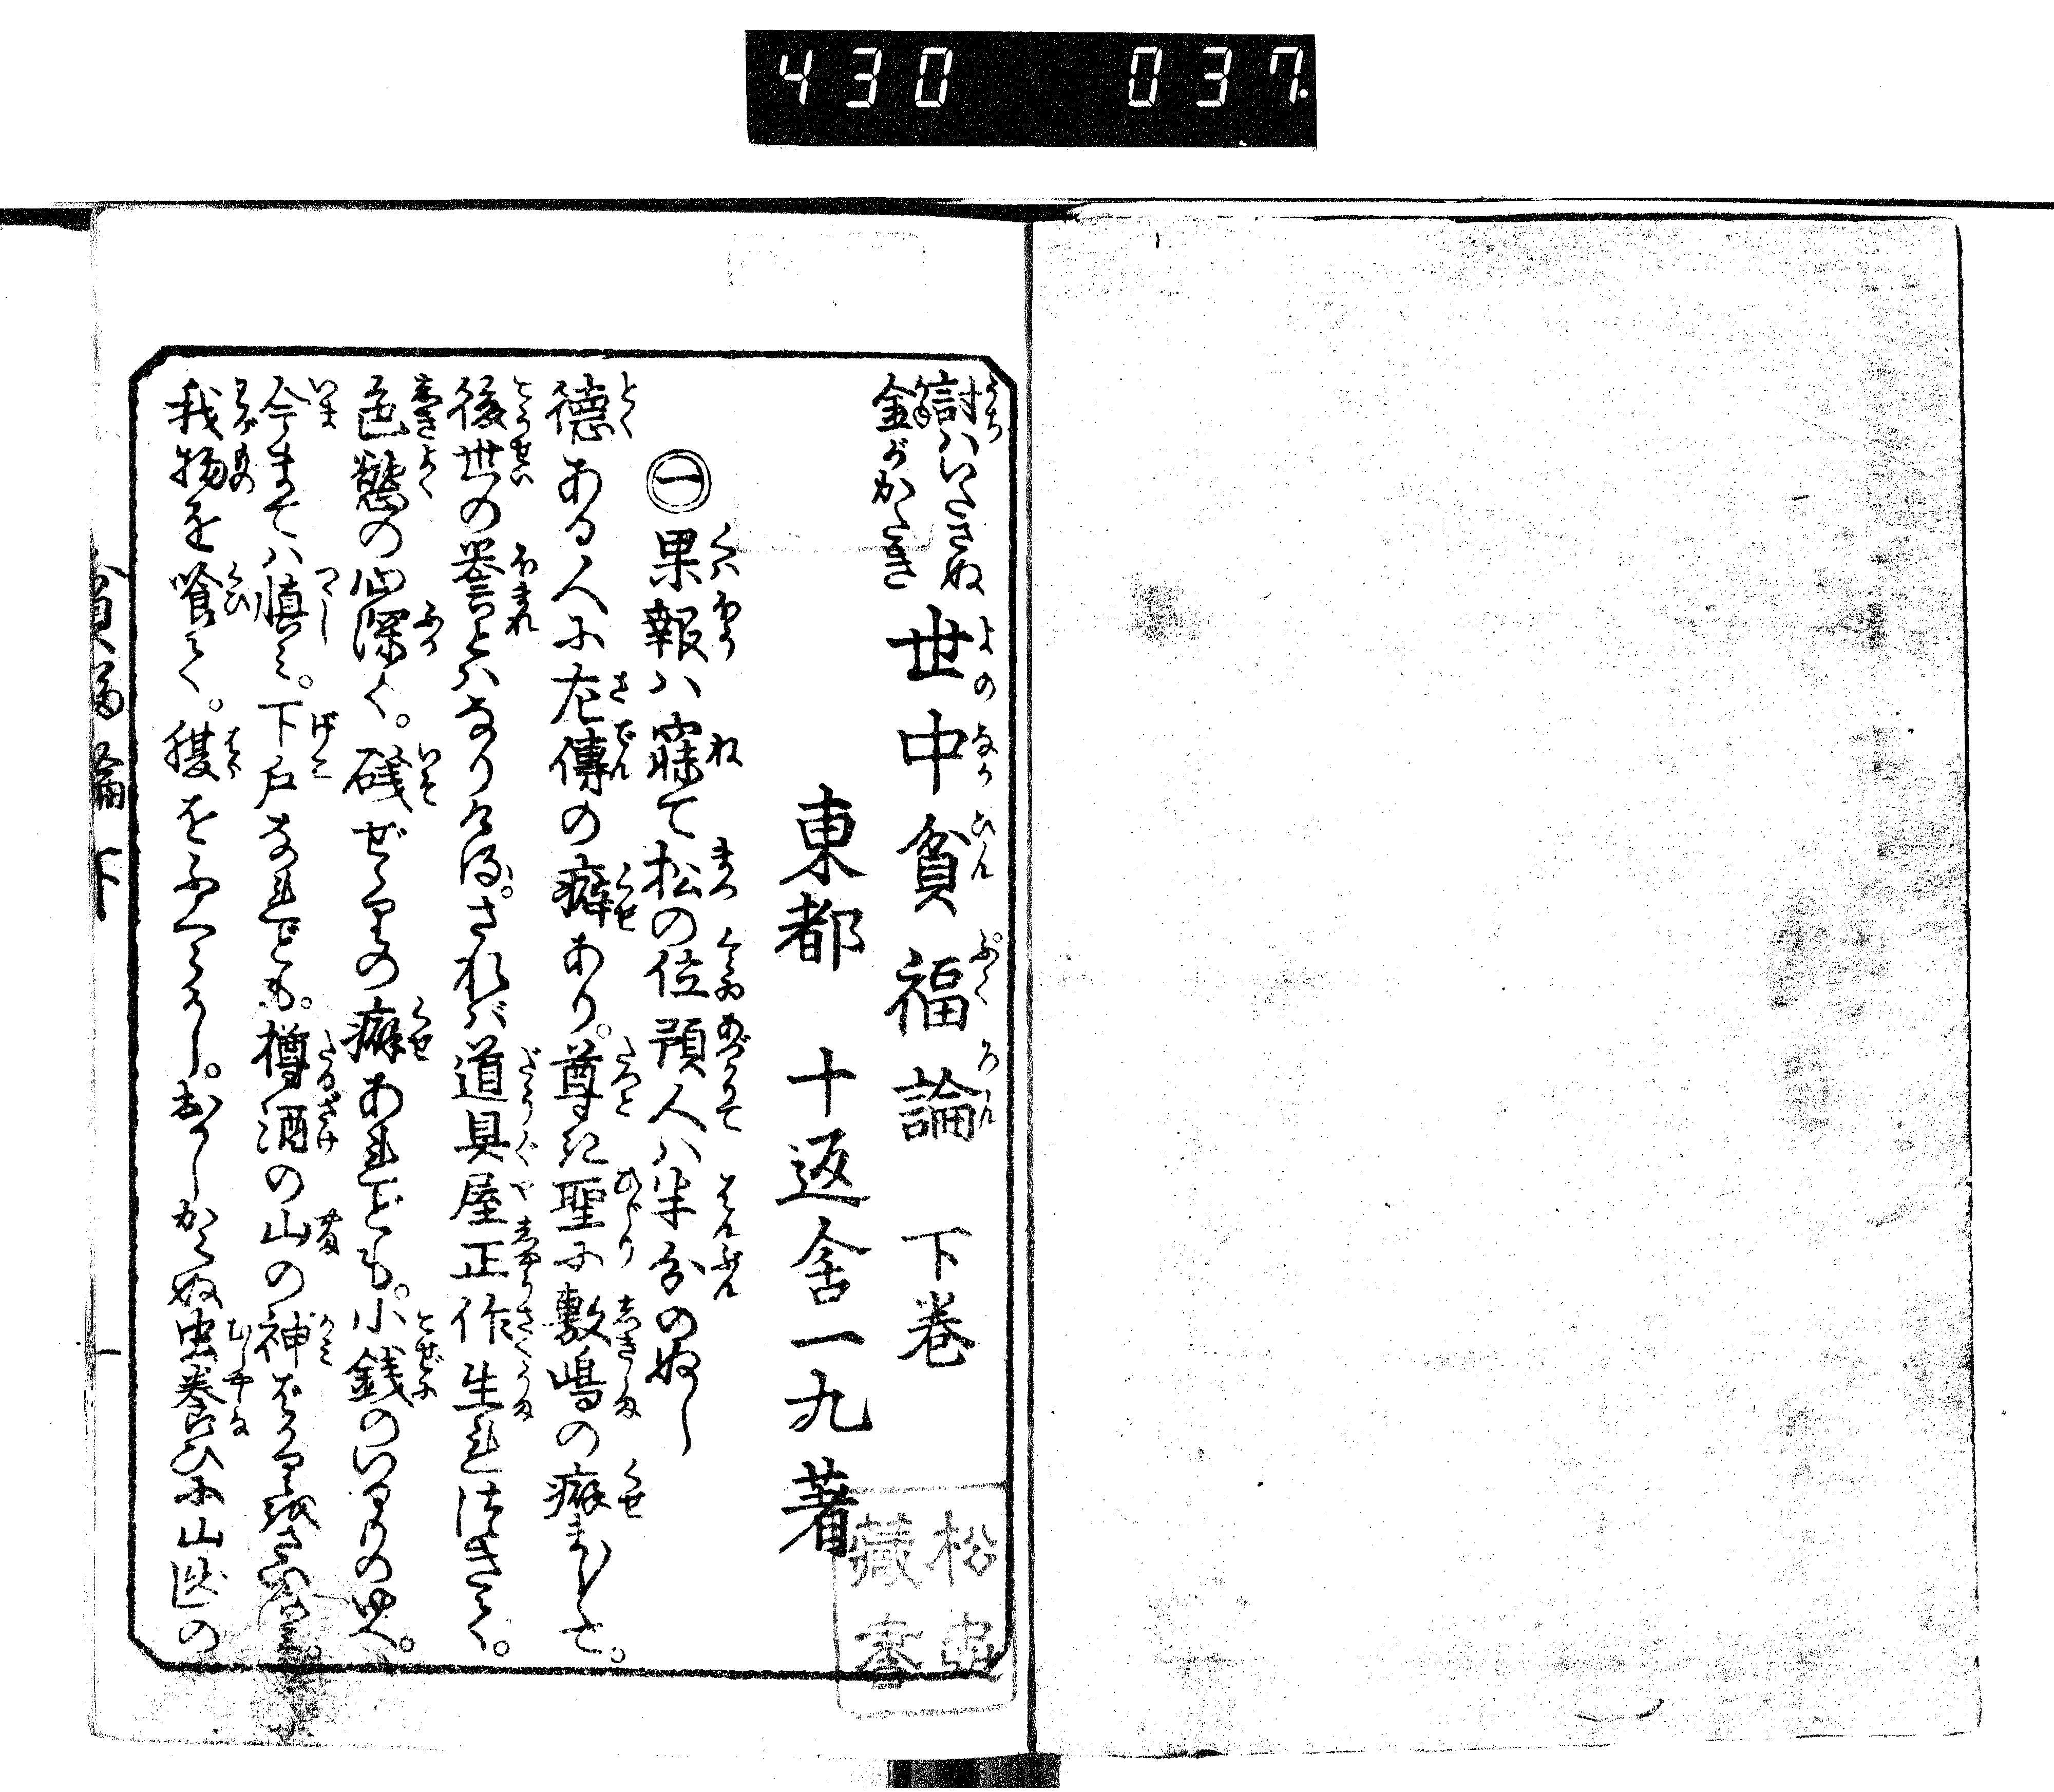 430 037.
討ハいたさぬ
金がかたき
世中貧福論 下巻
東都 十返舎一九著
㊀果報ハ寐て松の位預人ハ半分のぬし
徳ある人に左傳の癖あり。尊き聖に敷嶋の癖ましまして。
後世の誉とハなりける。されバ道具屋正作生れつきて。
色慾の心深く。礒ぜゝりの癖あれども。小銭のいるものゆへ。
今まてハ慎ミ。下戸なれども。樽酒の山の神
我物を喰て。腹をふくらし。おかしからぬ虫養ひに山出の
貧福論 下
一
松
藏書